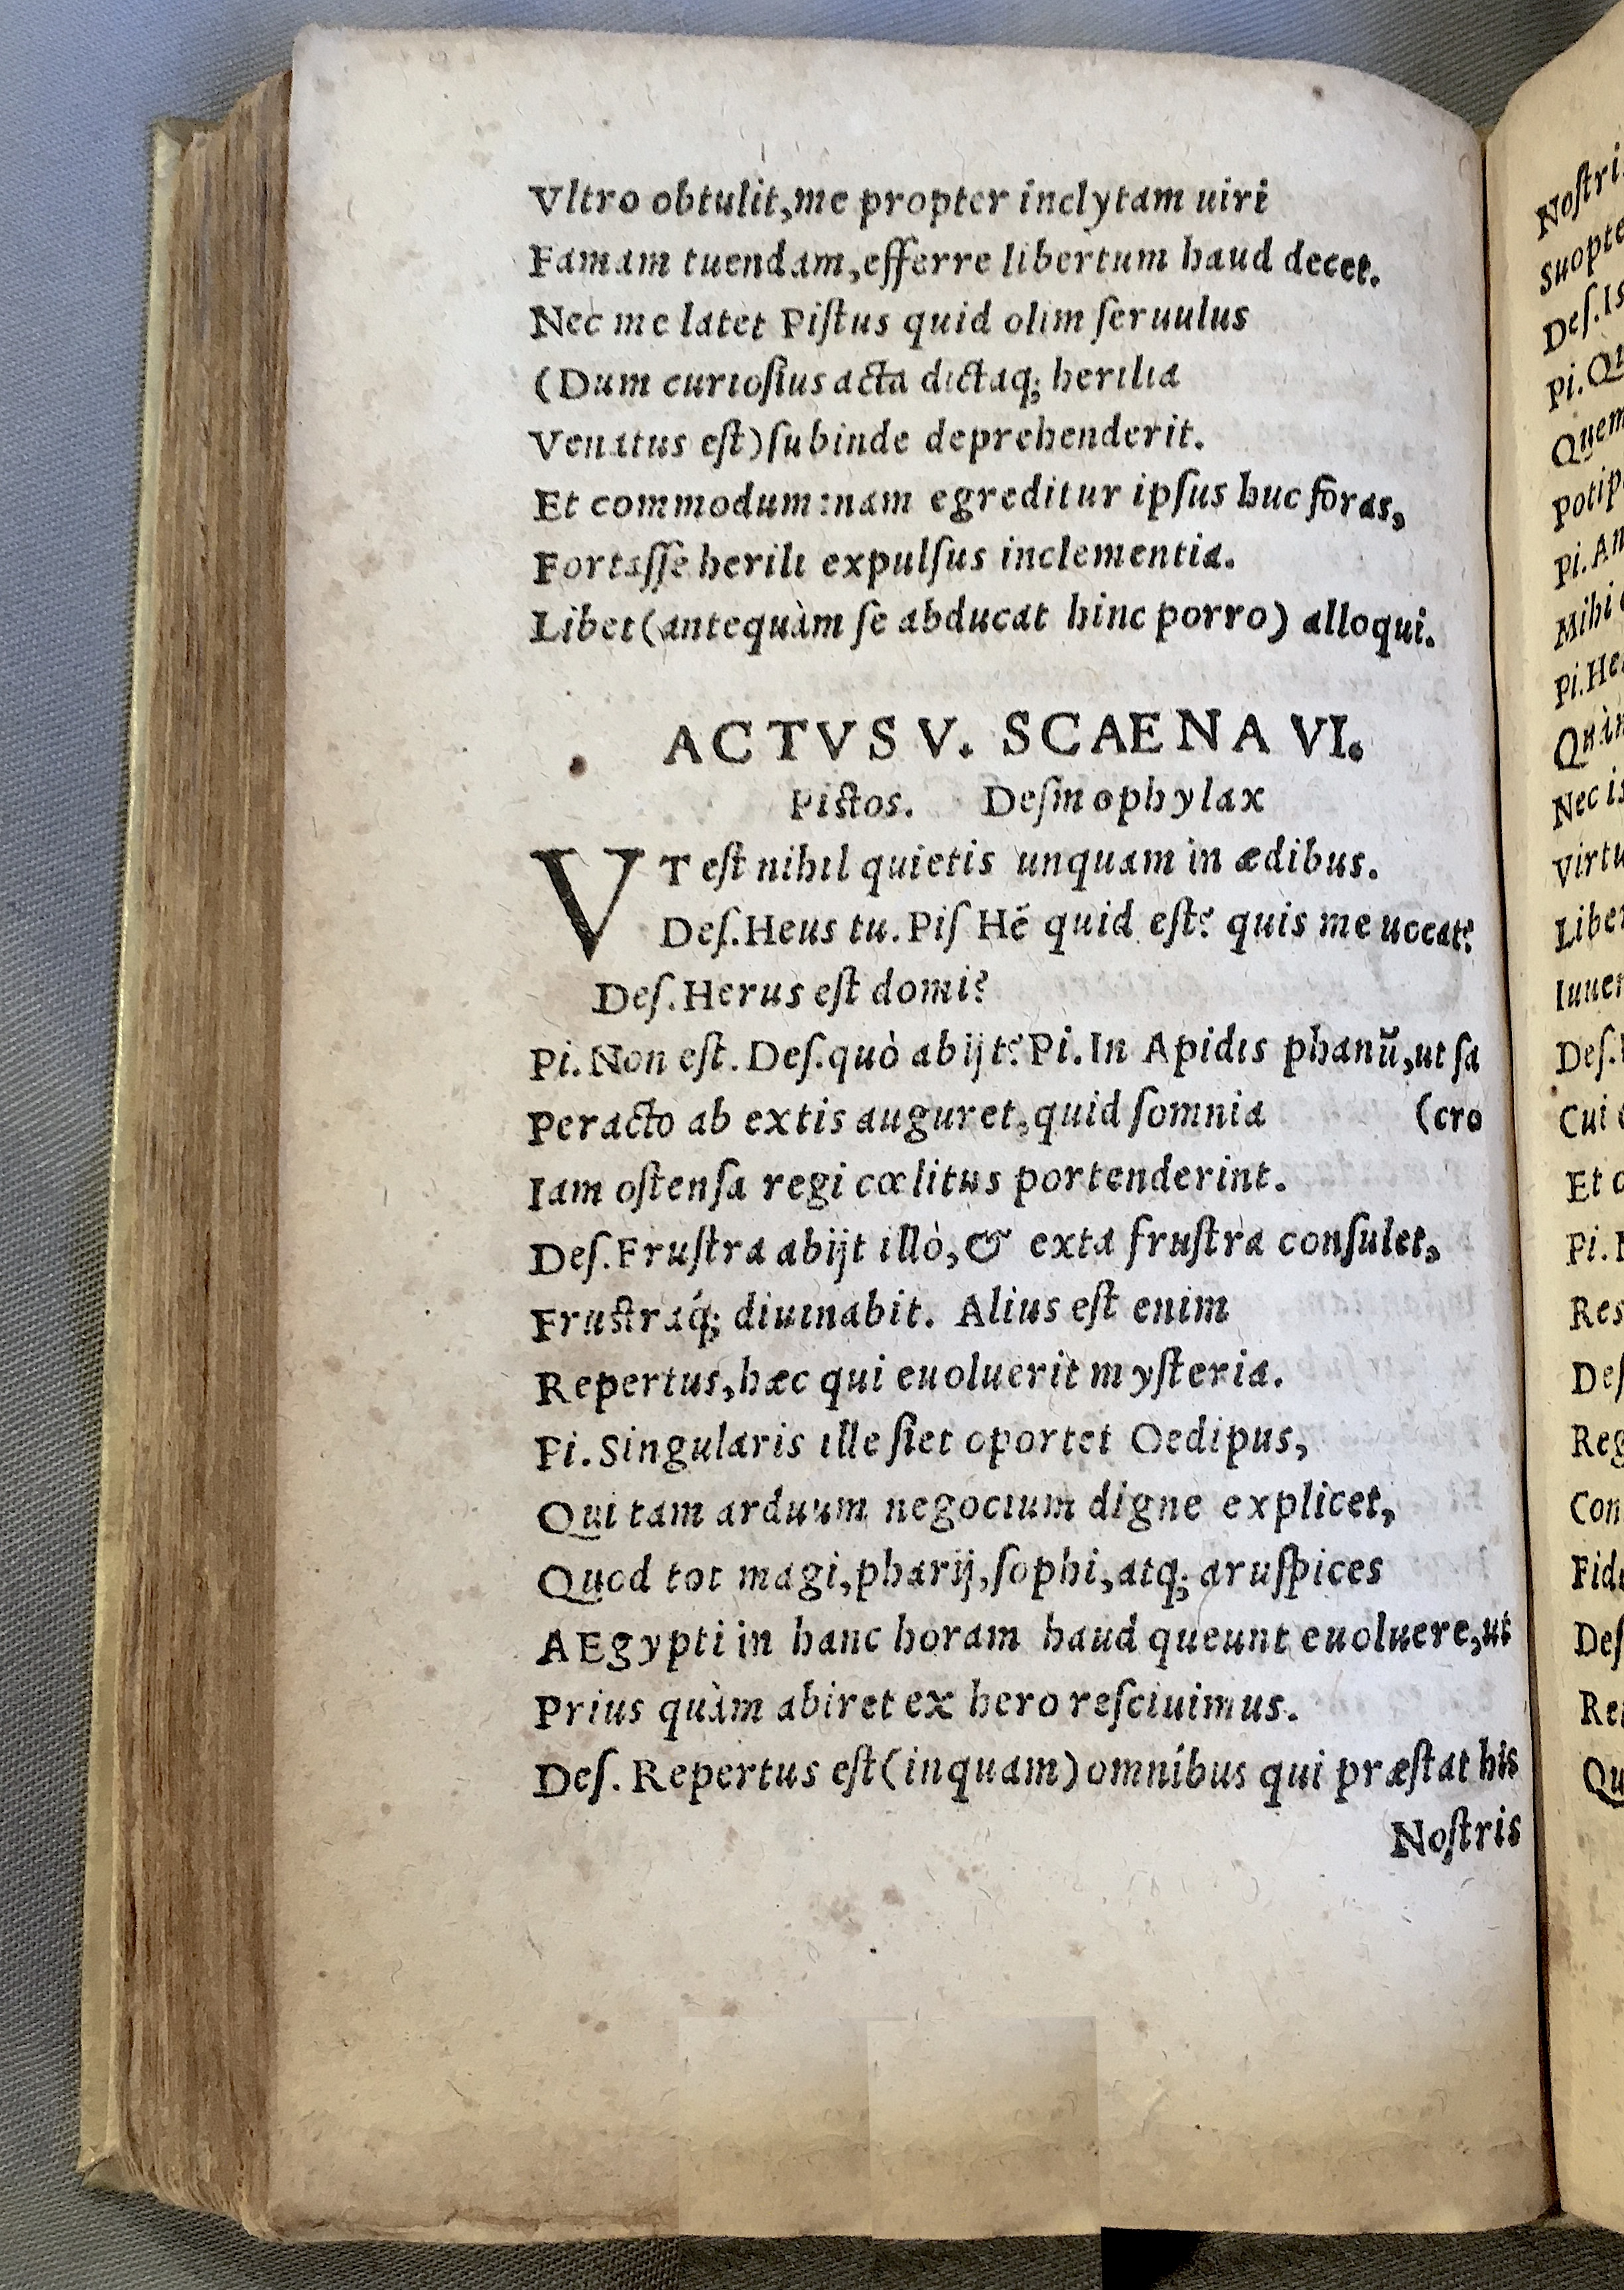 Vltro obtulit,me propter inclytam uiri
Famam tuendam,efferre libertum haud decet.
Nec me latet Piſtus quid olim ſeruulus
(Dum curioſius acta dictaq; herilia
Venatus eſt)ſubinde deprehenderit.
Et commodum:nam egreditur ipſus huc foras,
Fortaſſe herili expulſus inclementia.
Libet(antequàm ſe abducat hinc porro) alloqui.
ACTVS V. SCAENA VI.
Piſtos. Deſmophylax
VT eſt nihil quietis unquam in ædibus.
Deſ.Heus tu.Piſ Hẽ quid eſt? quis me uocat?
Deſ.Herus eſt domi?
Pi.Non eſt.Deſ.quò abijt?Pi.In Apidis phanũ,ut ſa
Peracto ab extis auguret,quid ſomnia (cro
Iam oſtenſa regi cœlitus portenderint.
Deſ.Fruſtra abijt illò,& exta fruſtra conſulet,
Fruſtráq; diuinabit. Alius eſt enim
Repertus,hæc qui euoluerit myſteria.
Pi.Singularis ille ſiet oportet Oedipus,
Qui tam arduum negocium digne explicet,
Quod tot magi,pharij,ſophi,atq; aruſpices
AEgypti in hanc horam haud queunt euoluere,ut
Prius quàm abiret ex hero reſciuimus.
Deſ. Repertus eſt(inquam)omníbus qui præſtat his
Noſtris
Noſtri
Suopte
Deſ.Is
Pi.Qu
Quem
Potip
Pi.An
Mihi
Pi.He
Quàn
Nec is
Virtu
Liber
Iuuen
Deſ.
Cui
Et
Pi.
Res
Deſ
Reg
Con
Fid
Deſ
Re
Qu